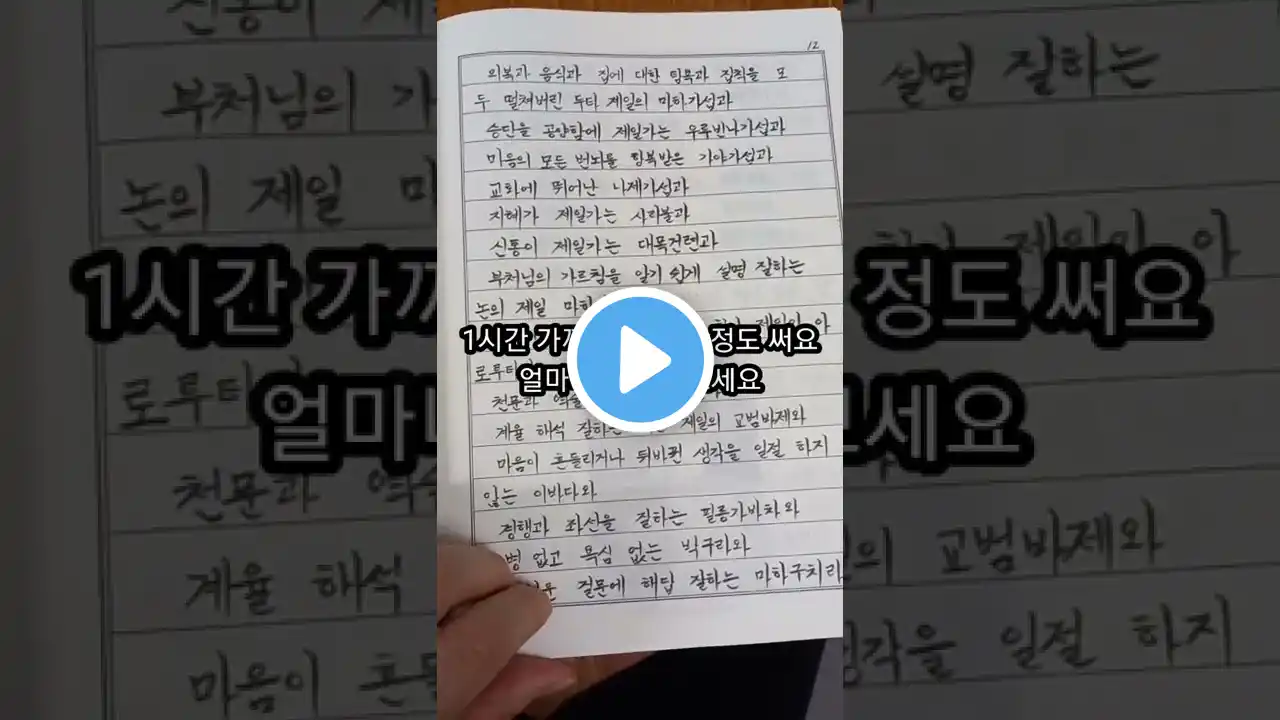 12
의복과 음식과 집에 대한 탐욕과 집착을 모
두 떨쳐버린 두타 제일의 마하가섭과
승단을 공양함에 제일가는 우루빈나가섭과
마음의 모든 번뇌를 항복받은 가야가섭과
교화에 뛰어난 나제가섭과
지혜가 제일가는 사리불과
신통이 제일가는 대목건련과
부처님의 가르침을 알기 쉽게 설명 잘하는
논의 제일 마하
제일의 아
1시간 정도 써요
로투타
얼마 세요
천문과 역수
계율 해석 잘하는 제일의 교범바제와
마음이 흔들리거나 뒤바뀐 생각을 일절 하지
않는 이바다와
경행과 좌선을 잘하는 필릉가바차와
병 없고 욕심 없는 박구라와
질문에 해답 잘하는 마하구치라